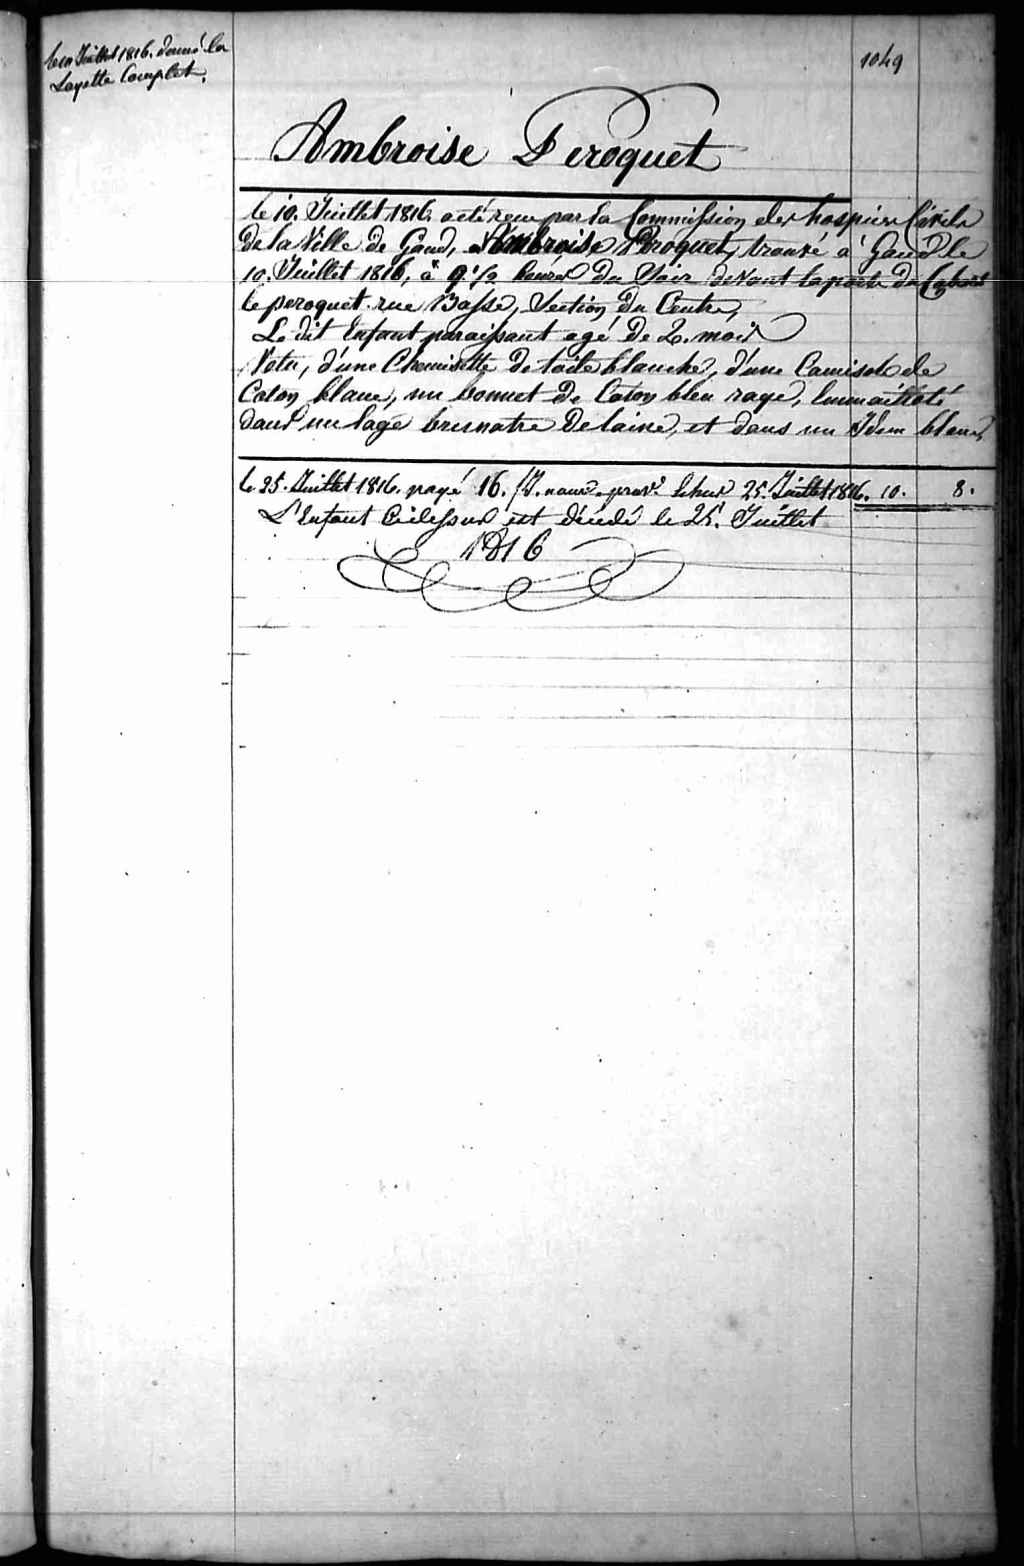 le 10 Juillet 1816. donné la
Layette Complet.
1049
Ambroise Peroquet
le 10. Juillet 1816. a été reçu par la Commission des hospices Civils
de la Ville de Gand, Ambroise Peroquet, trouvé à Gand le
10. Juillet 1816, à 9 1/2 heures du Soir devant la porte du Cabaret
le peroquet rue Basse, Section du Centre,
Le dit Enfant paraissant agé de 2. mois
Vetu, d'une Chemisette de toile blanche, d'une Camisole de
Coton blanc, un bonnet de Coton bleu rayé, Emmailloté
dans un lagé brunatre De laine, et dans un Idem blanc,
le 25. Juillet 1816. payé 16. J. 25. Juillet 1816. 10. 8.
L'Enfant Cidessus est décédé le 25. Juillet
1816